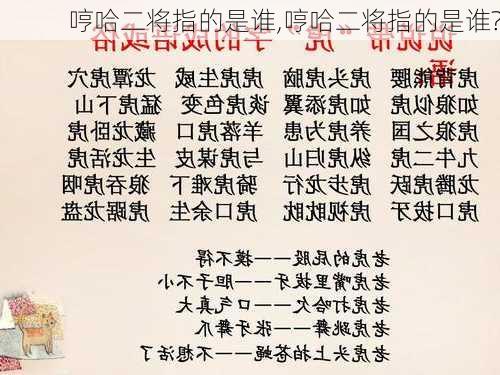 哼哈二将指的是谁,哼哈二将指的是谁?
说说带“虎”字的成语或俗语
虎背熊腰 虎头虎脑 虎虎生威 龙潭虎穴
如狼似虎 如虎添翼 谈虎色变 猛虎下山
虎狼之国 养虎为患 羊落虎口 藏龙卧虎
九牛二虎 纵虎归山 与虎谋皮 生龙活虎
龙腾虎跃 虎步龙行 骑虎难下 狼吞虎咽
虎口拔牙 虎视眈眈 虎口余生 虎踞龙盘
老虎的屁股———摸不得
老虎嘴里拔牙———胆子不小
老虎打哈欠———口气真大
老虎跳舞———张牙舞爪
老虎头上拍苍蝇———不想活了